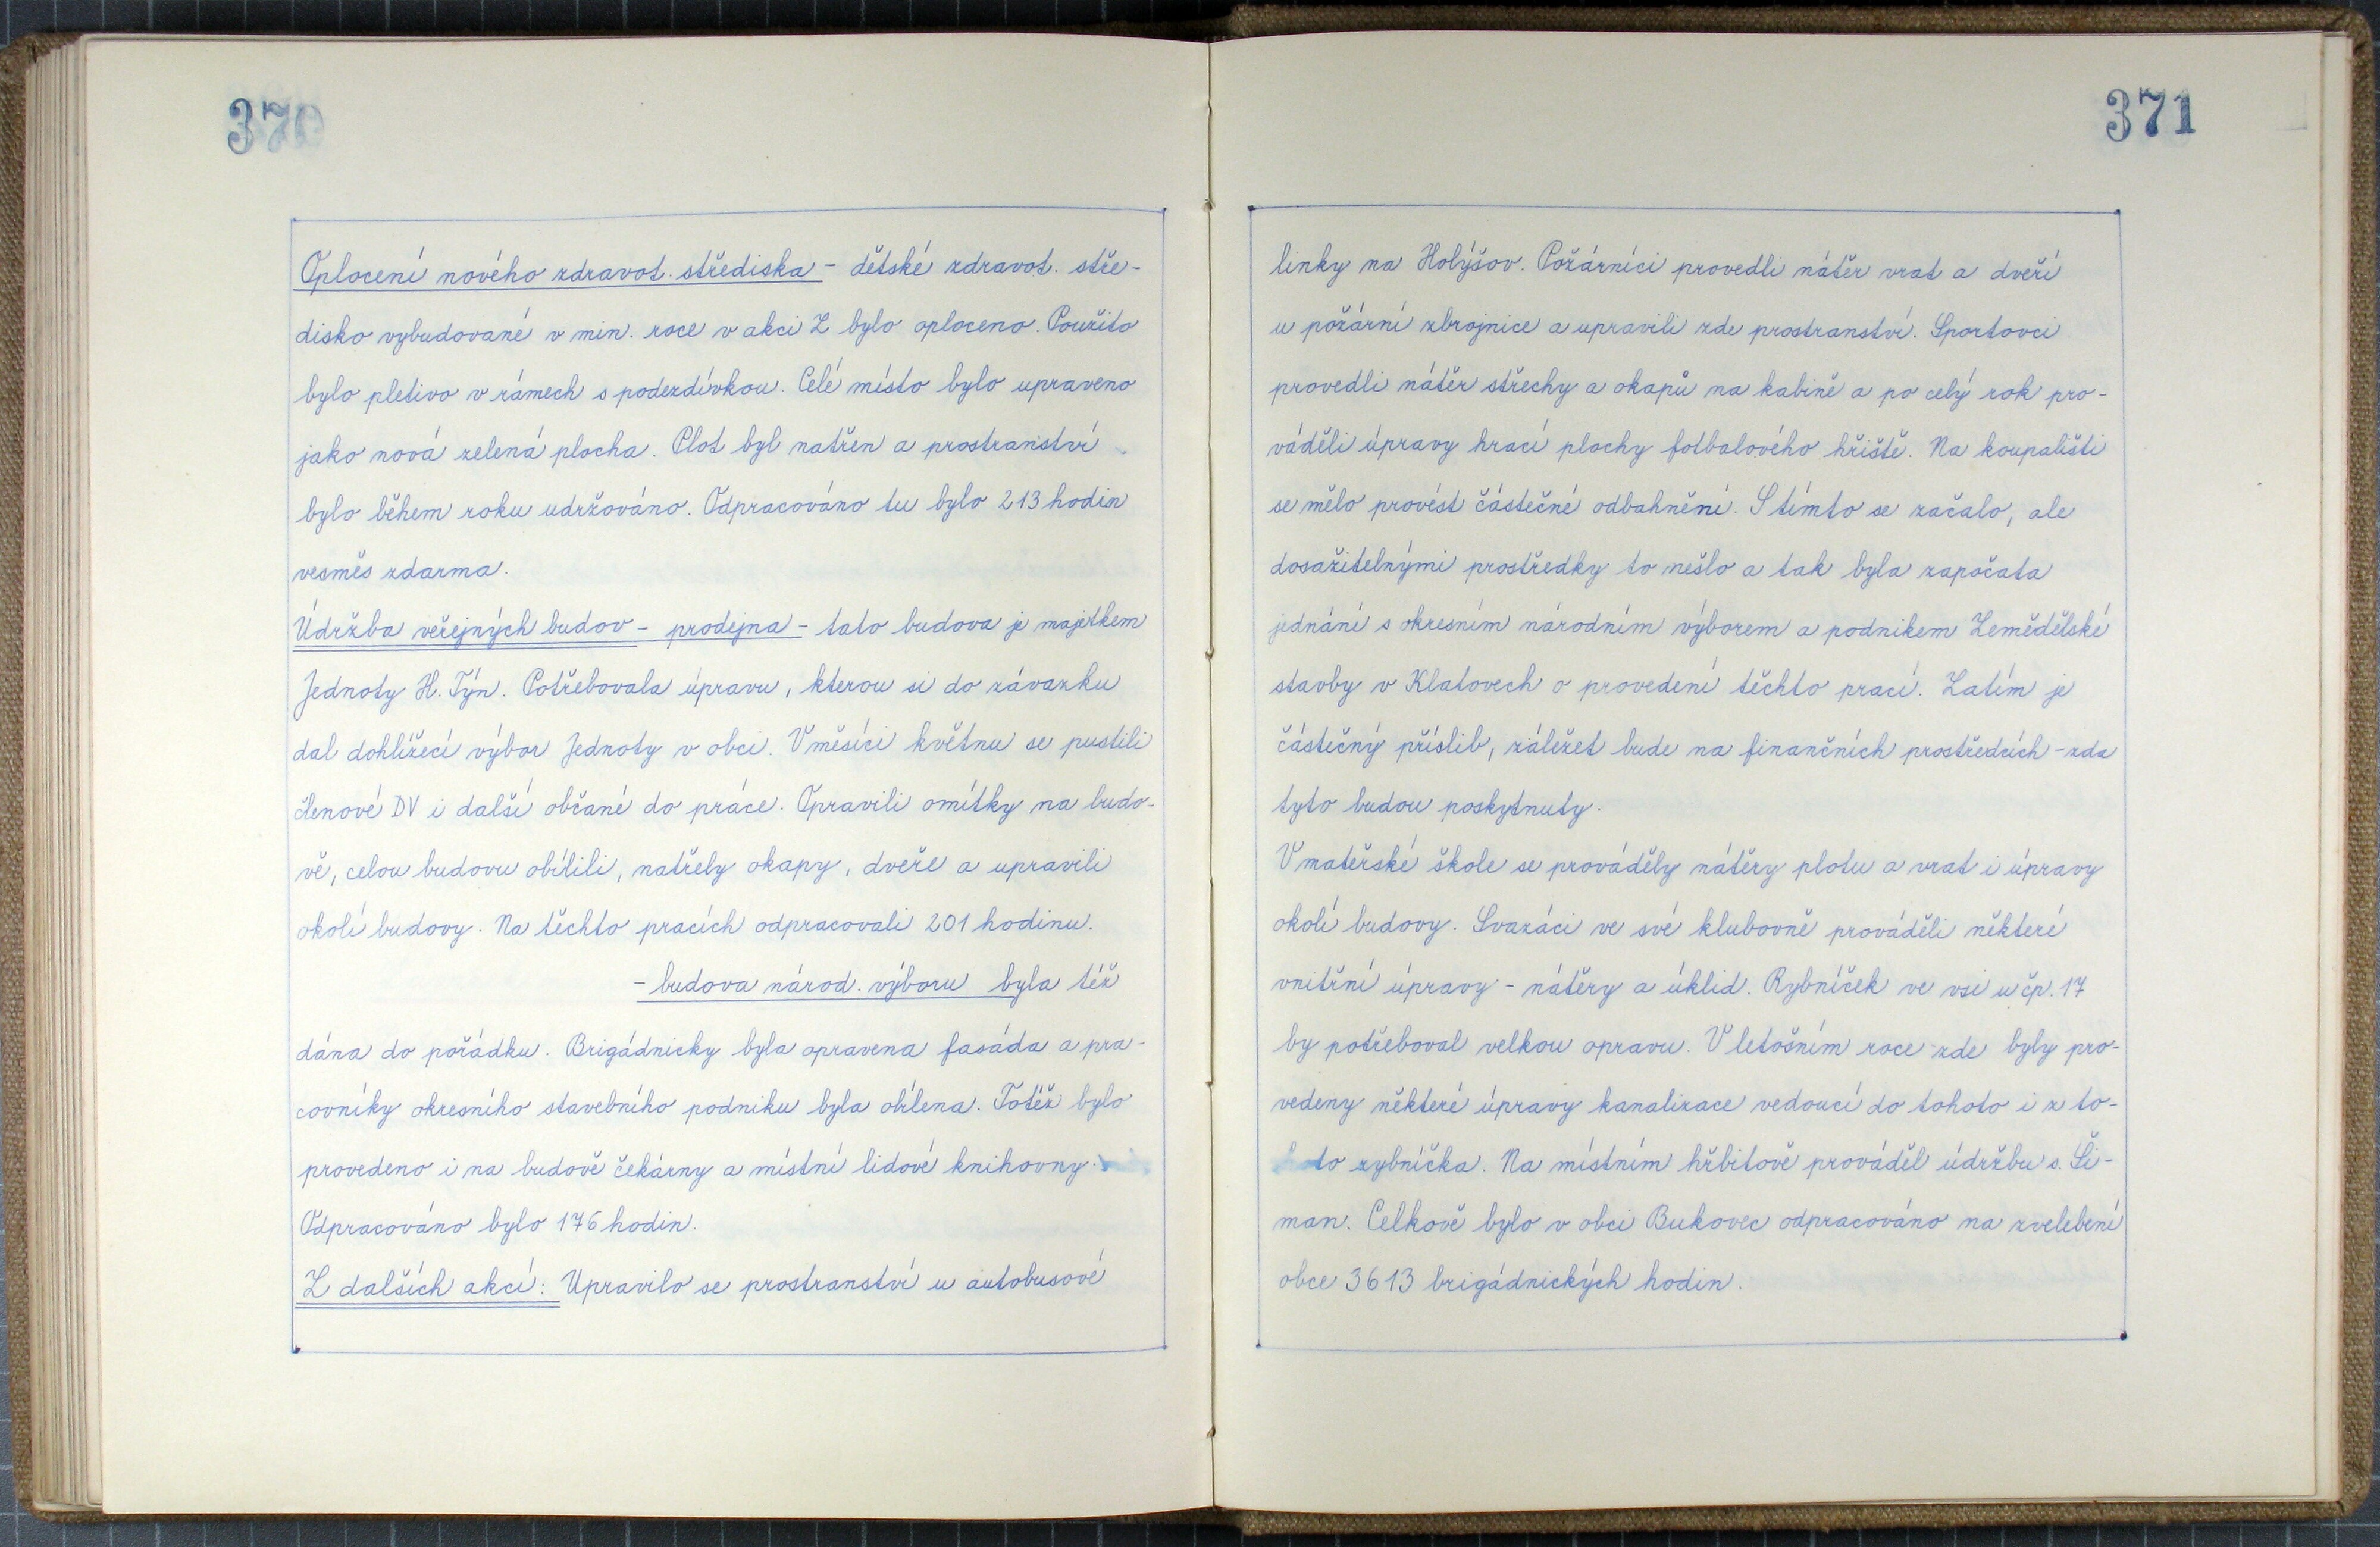 370
Oplocení nového zdravot. střediska - dětské zdravot. stře-
disko vybudované v min. roce v akci Z bylo oploceno. Použito
bylo pletivo v rámech s podezdívkou. Celé místo bylo upraveno
jako nová zelená plocha. Plot byl natřen a prostranství
bylo během roku udržováno. Odpracováno tu bylo 213 hodin
vesměs zdarma.
Údržba veřejných budov - prodejna - tato budova je majetkem
Jednoty H. Týn. Potřebovala úpravu, kterou si do závazku
dal dohlížecí výbor Jednoty v obci. V měsíci květnu se pustili
členové DV i další občané do práce. Opravili omítky na budo-
vě, celou budovu obílili, natřely okapy, dveře a upravili
okolí budovy. Na těchto pracích odpracovali 201 hodinu.
- budova národ. výboru byla též
dána do pořádku. Brigádnicky byla opravena fasáda a pra-
covníky okresního stavebního podniku byla obílena. Totéž bylo
provedeno i na budově čekárny a místní lidové knihovny.
Odpracováno bylo 176 hodin.
Z dalších akcí: Upravilo se prostranství u autobusové
371
linky na Holýšov. Požárníci provedli nátěr vrat a dveří
u požární zbrojnice a upravili zde prostranství. Sportovci
provedli nátěr střechy a okapů na kabině a po celý rok pro-
váděli úpravy hrací plochy fotbalového hřiště. Na koupališti
se mělo provést částečné odbahnění. S tímto se začalo, ale
dosažitelnými prostředky to nešlo a tak byla započata
jednání s okresním národním výborem a podnikem Zemědělské
stavby v Klatovech o provedení těchto prací. Zatím je
částečný příslib, záležet bude na finančních prostředcích - zda
tyto budou poskytnuty.
V mateřské škole se prováděly nátěry plotu a vrat i úpravy
okolí budovy. Svazáci ve své klubovně prováděli některé
vnitřní úpravy - nátěry a úklid. Rybníček ve vsi u čp. 17
by potřeboval velkou opravu. V letošním roce zde byly pro-
vedeny některé úpravy kanalizace vedoucí do tohoto i z to-
to rybníčka. Na místním hřbitově prováděl údržbu s. Ši-
man. Celkově bylo v obci Bukovec odpracováno na zvelebení
obce 3613 brigádnických hodin.